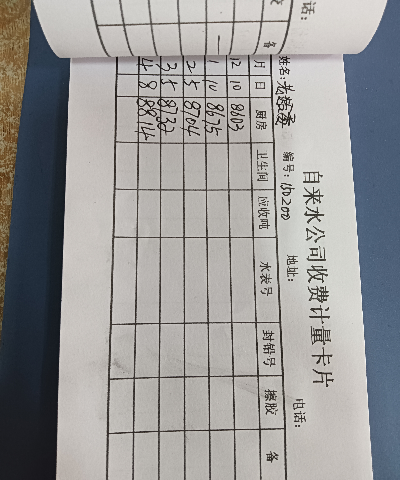 自来水公司收费计量卡片
姓名: 编号: 150200 地址: 电话:
月 日 厨房 卫生间 应收吨 水表号 封铅号 擦胶 备
12 10 8603
1 10 8675
2 5 8704
3 5 8732
4 8 8814
话:
备